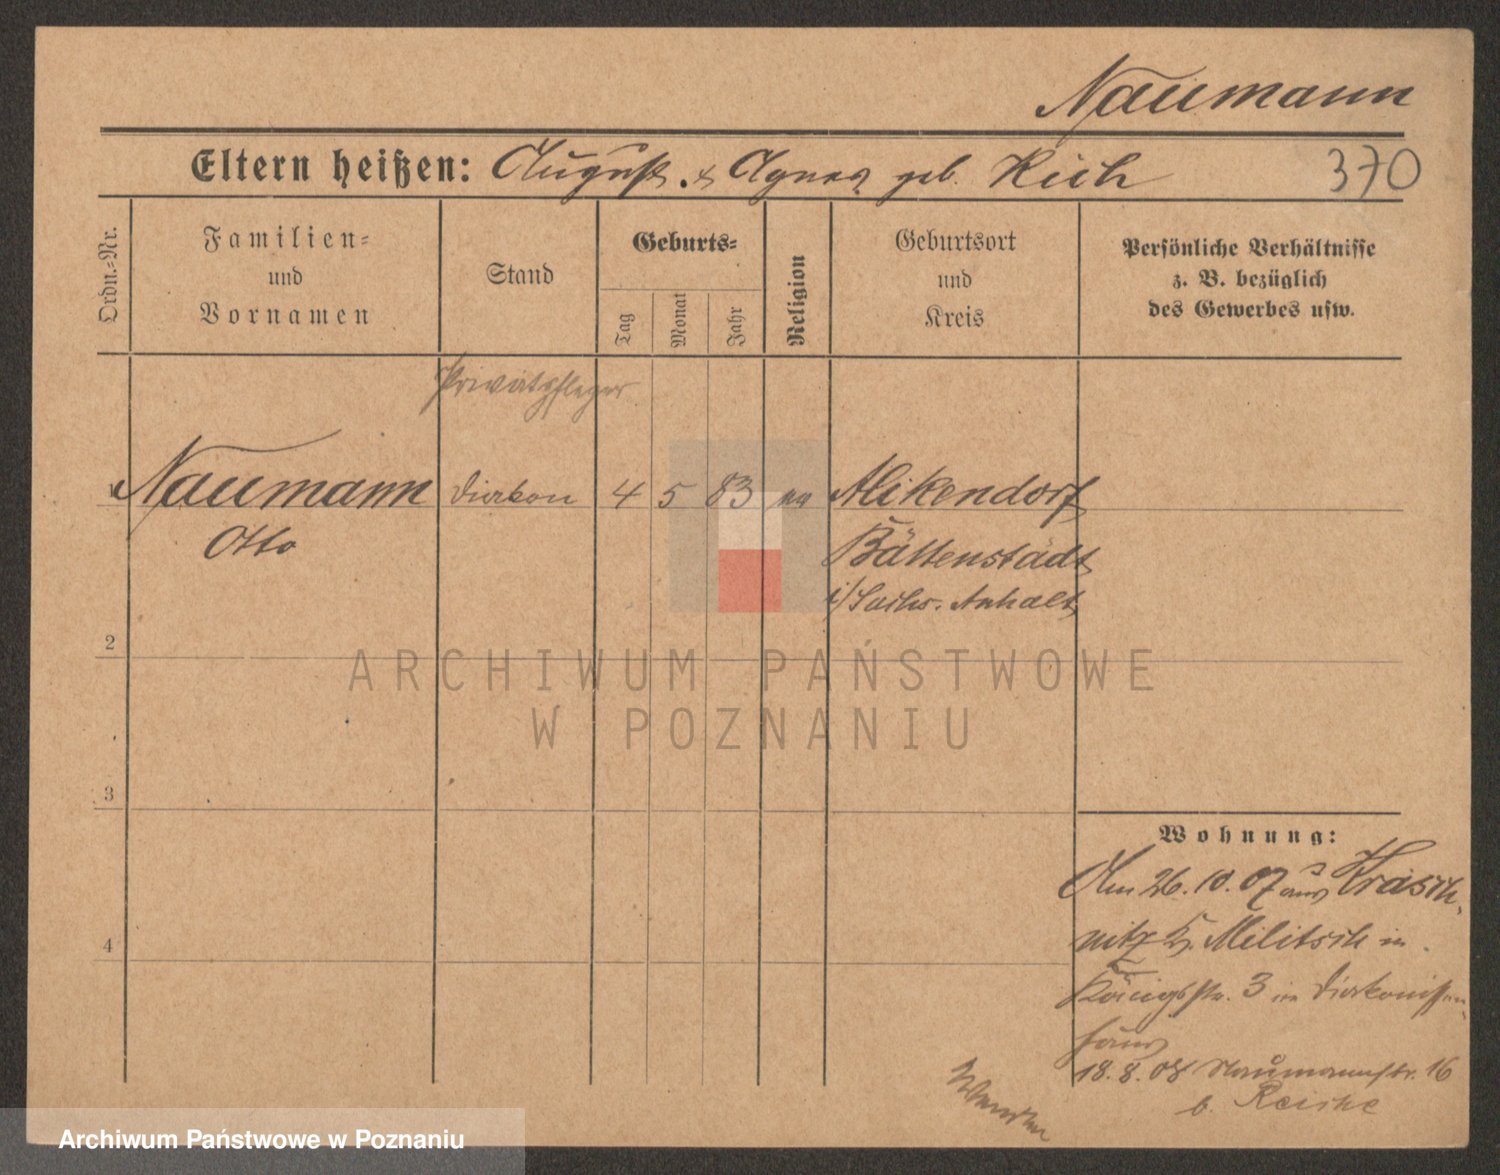 Naumann
Eltern heißen: August & Agnes geb. Reich
370
Ordn.-Nr.
Familien-
und
Vornamen
Stand
Geburts-
Tag
Monat
Jahr
Religion
Geburtsort
und
Kreis
Persönliche Verhältnisse
z. B. bezüglich
des Gewerbes usw.
Privatpfleger
1 Naumann Diakon 4 5 83 Alikendorf
Otto
Bättenstädt
i/Sachs. Anhalt
2
3
4
Wohnung:
Am 26.10.07 aus Krasch-
nitz Kr. Militsch in
Königsstr. 3 im Diakonissen-
haus
18.8.08 Naumannstr. 16
b. Reiche
ARCHIWUM PAŃSTWOWE
W POZNANIU
Archiwum Państwowe w Poznaniu